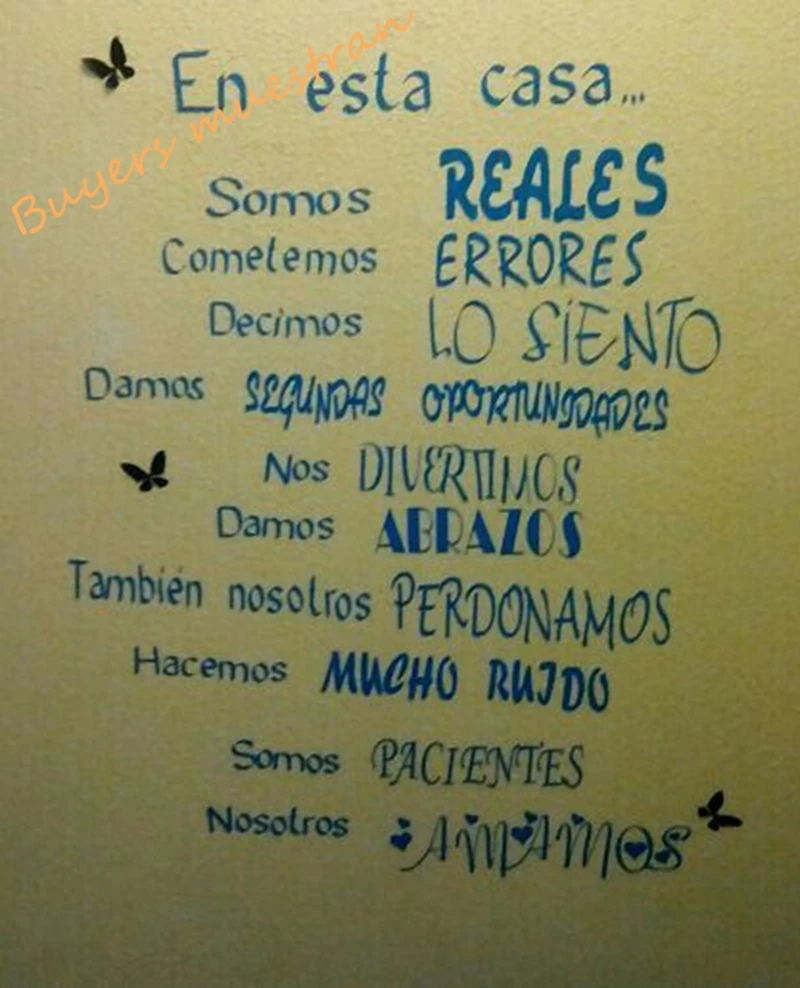 Buyers muestran
En esta casa...
Somos REALES
Cometemos ERRORES
Decimos LO SIENTO
Damos SEGUNDAS OPORTUNIDADES
Nos DIVERTIMOS
Damos ABRAZOS
También nosotros PERDONAMOS
Hacemos MUCHO RUIDO
Somos PACIENTES
Nosotros AMAMOS